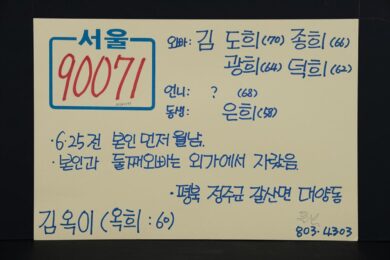 서울
90071
오빠: 김 도희(70) 종희(66)
광희(64) 덕희(62)
언니: ? (68)
동생: 은희(58)
·6·25전 본인 먼저 월남.
·본인과 둘째오빠는 외가에서 자랐음.
·평북 정주군 갈산면 대양동
김옥이 (옥희 : 60)
803·4303